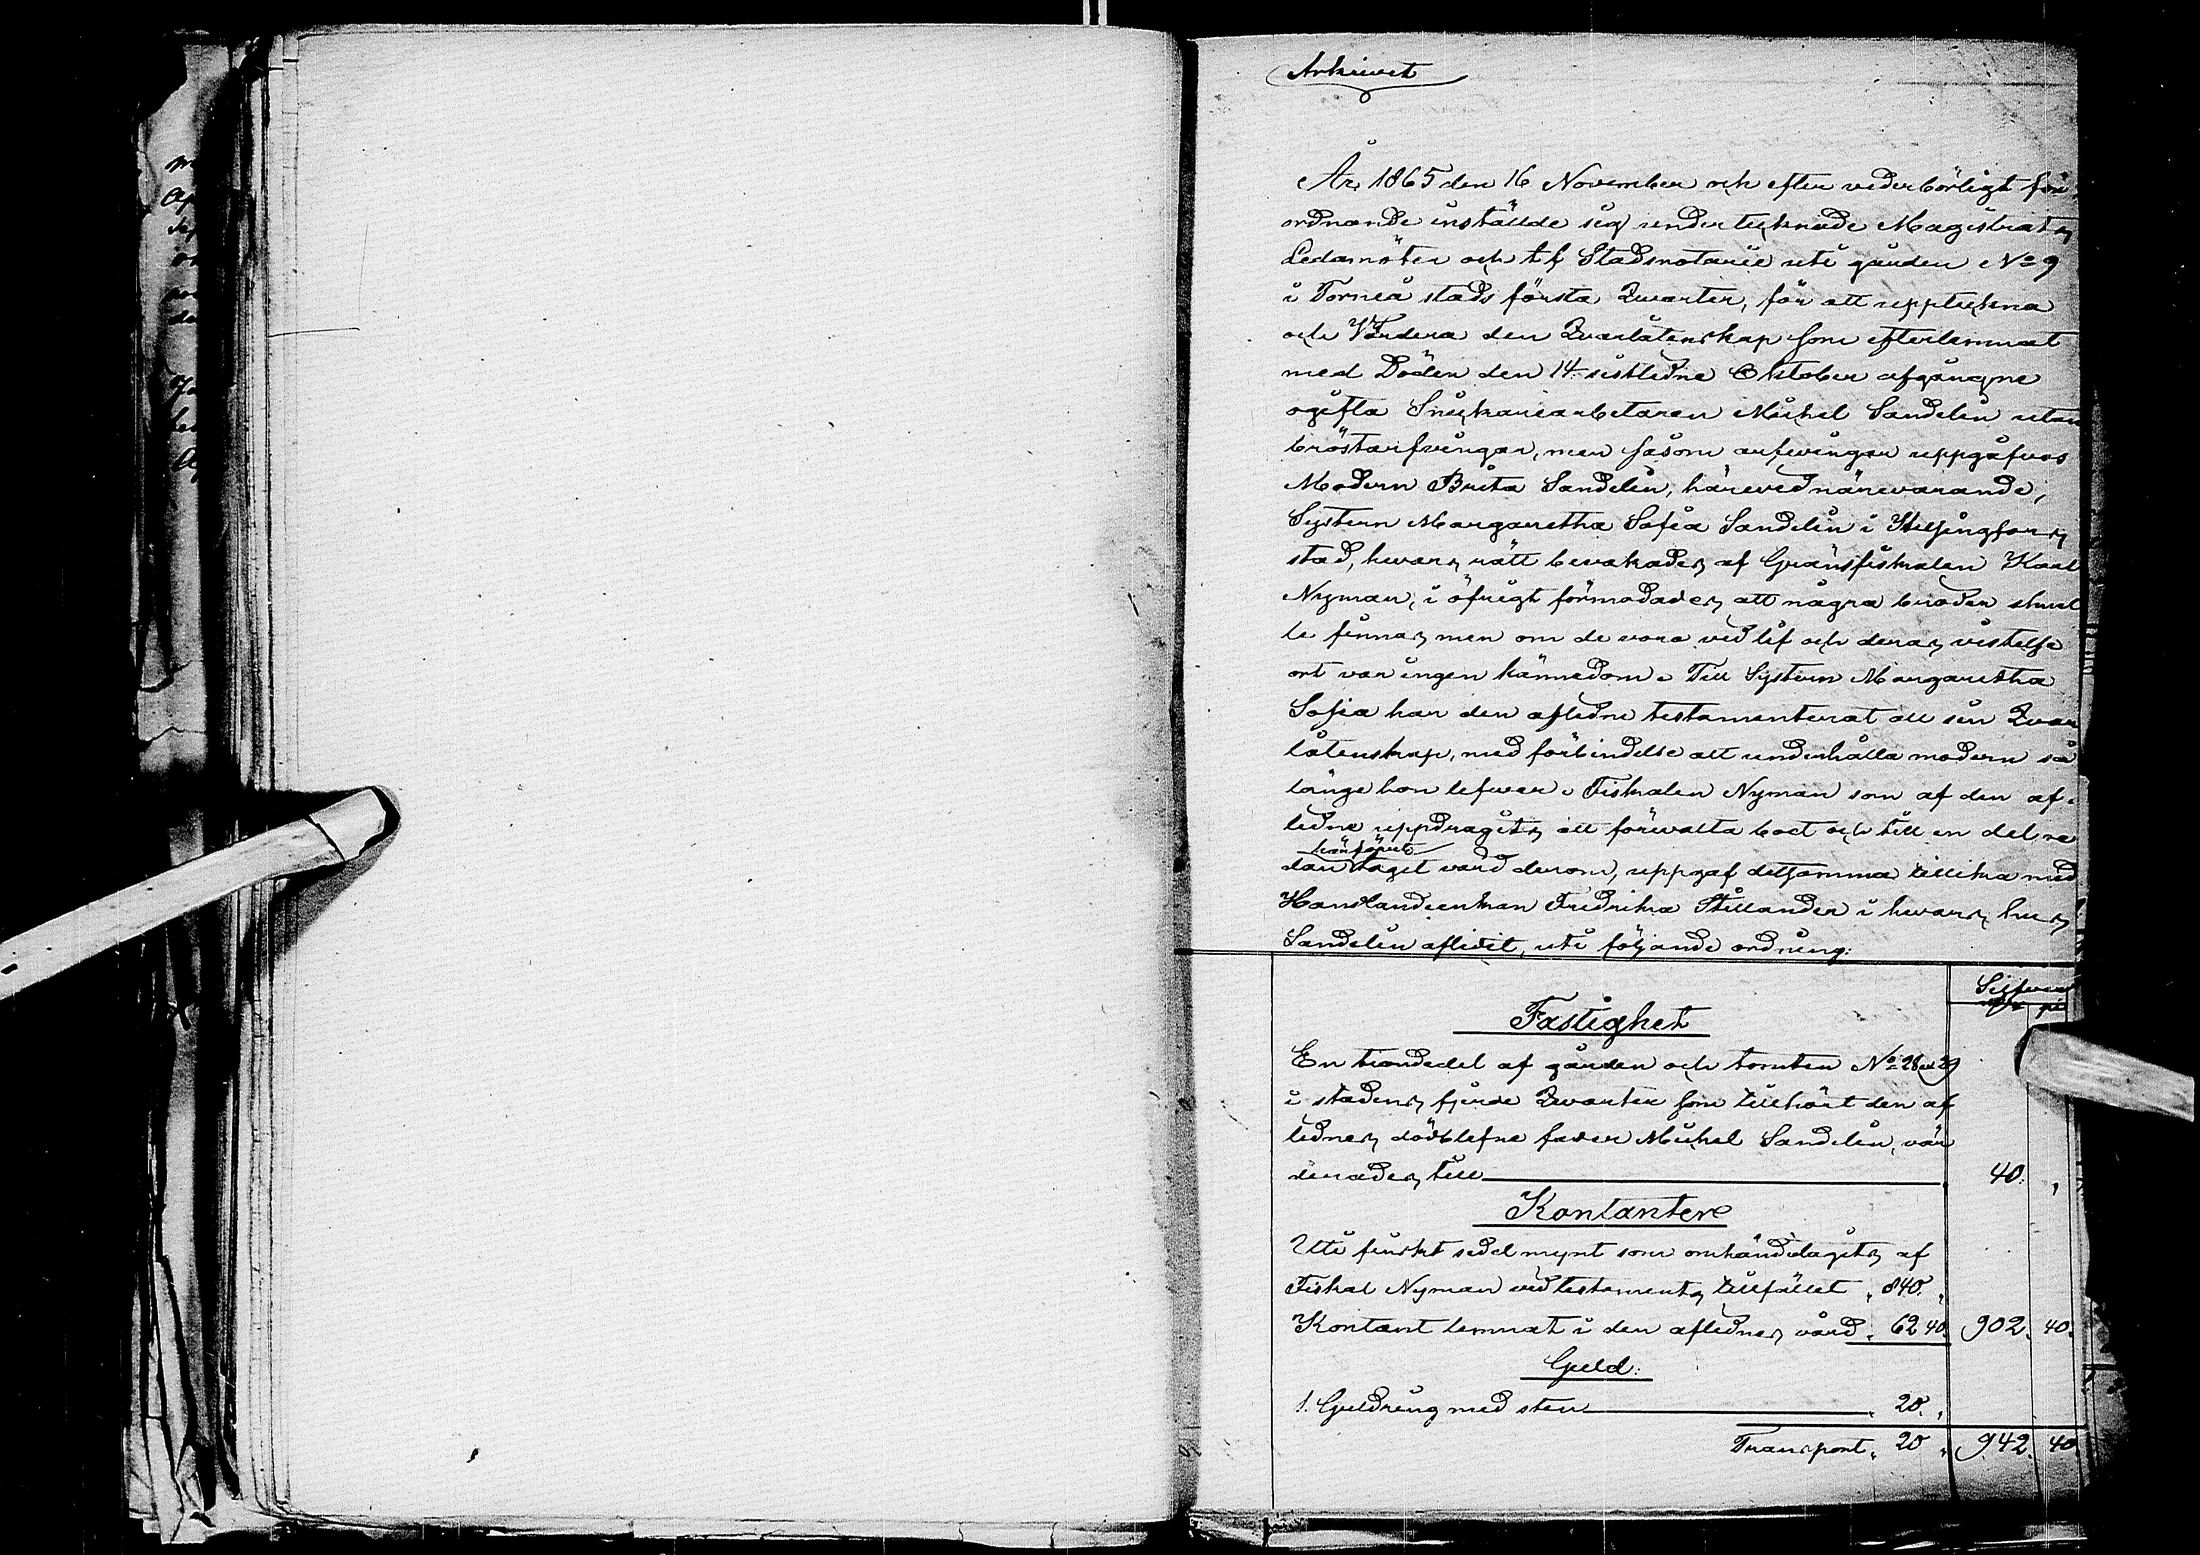 Arkivet
År 1865 den 16 November och efter vederbörligt för-
ordnande inställde sig undertecknade Magistrats
Ledamöter och t.f. Stadsnotarie uti gården No 9
i Torneå stads första Qvarter, för att uppteckna
och Värdera den Qvarlåtenskap som efterlemnat
med Döden den 14 sistledne Oktober afgångne
ogifta Snickariearbetaren Michel Sandelin utan
bröstarfvingar, men såsom arfvingar uppgåfvos
Modern Brita Sandelin, härvid närvarande,
Systern Margaretha Sofia Sandelin i Helsingfors
stad, hvars rätt bevakades af Gränsfiskalen Karl
Nyman, i öfrigt förmodades att några bröder skul
le finnas men om de voro vid lif och deras vistelse
ort var ingen kännedom. Till Systern Margaretha
Sofia har den aflidne testamenterat all sin Qvar
låtenskap, med förbindelse att underhålla modern så
länge hon lefver. Fiskalen Nyman som af den af-
lidne uppdragits att förvalta boet och till en del re
dan taget vård derom, uppgaf detsamma tillika med
Handlandeenkan Fredrika Stillander i hvars hus
Sandelin aflidit, uti följande ordning:
Silfver
Fastighet
En tiondedel af gården och tomten No 28 et 29
i stadens fjerde Qvarter som tillhört den af
lidnes dödblefne fader Michel Sandelin, vär
derades till 40. "
Kontanter
Uti finskt sedelmynt som omhändetagits af
Fiskal Nyman vid testaments tillfället " 840. "
Kontant lemnat i den aflidnes vård " 62 40 902. 40.
Guld.
1. Guldring med sten " 20. "
Transport " 20 " 942. 40.